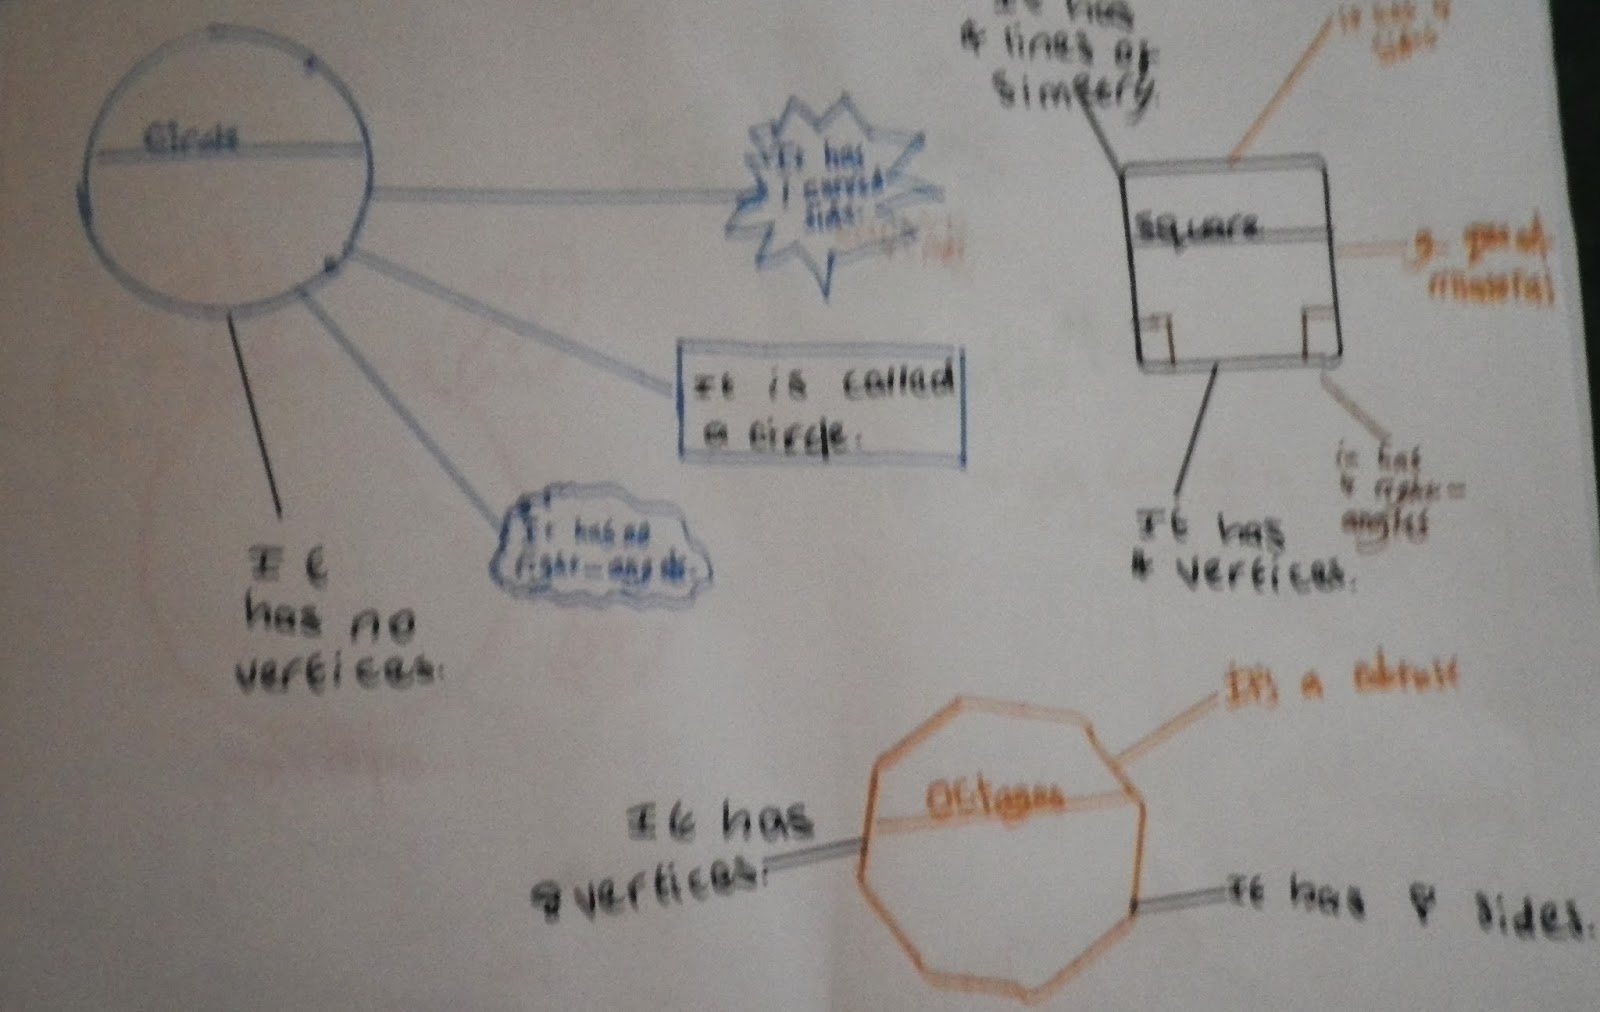 Circle
It has
1 curved
side.
It is called
a circle.
It has no
right-angles.
It
has no
vertices.
It has
4 lines of
simetry.
it has 4
sides
square
in has
4 right-
angles
It has
4 vertices.
Octagon
It's a
It has
8 vertices.
It has 8 sides.